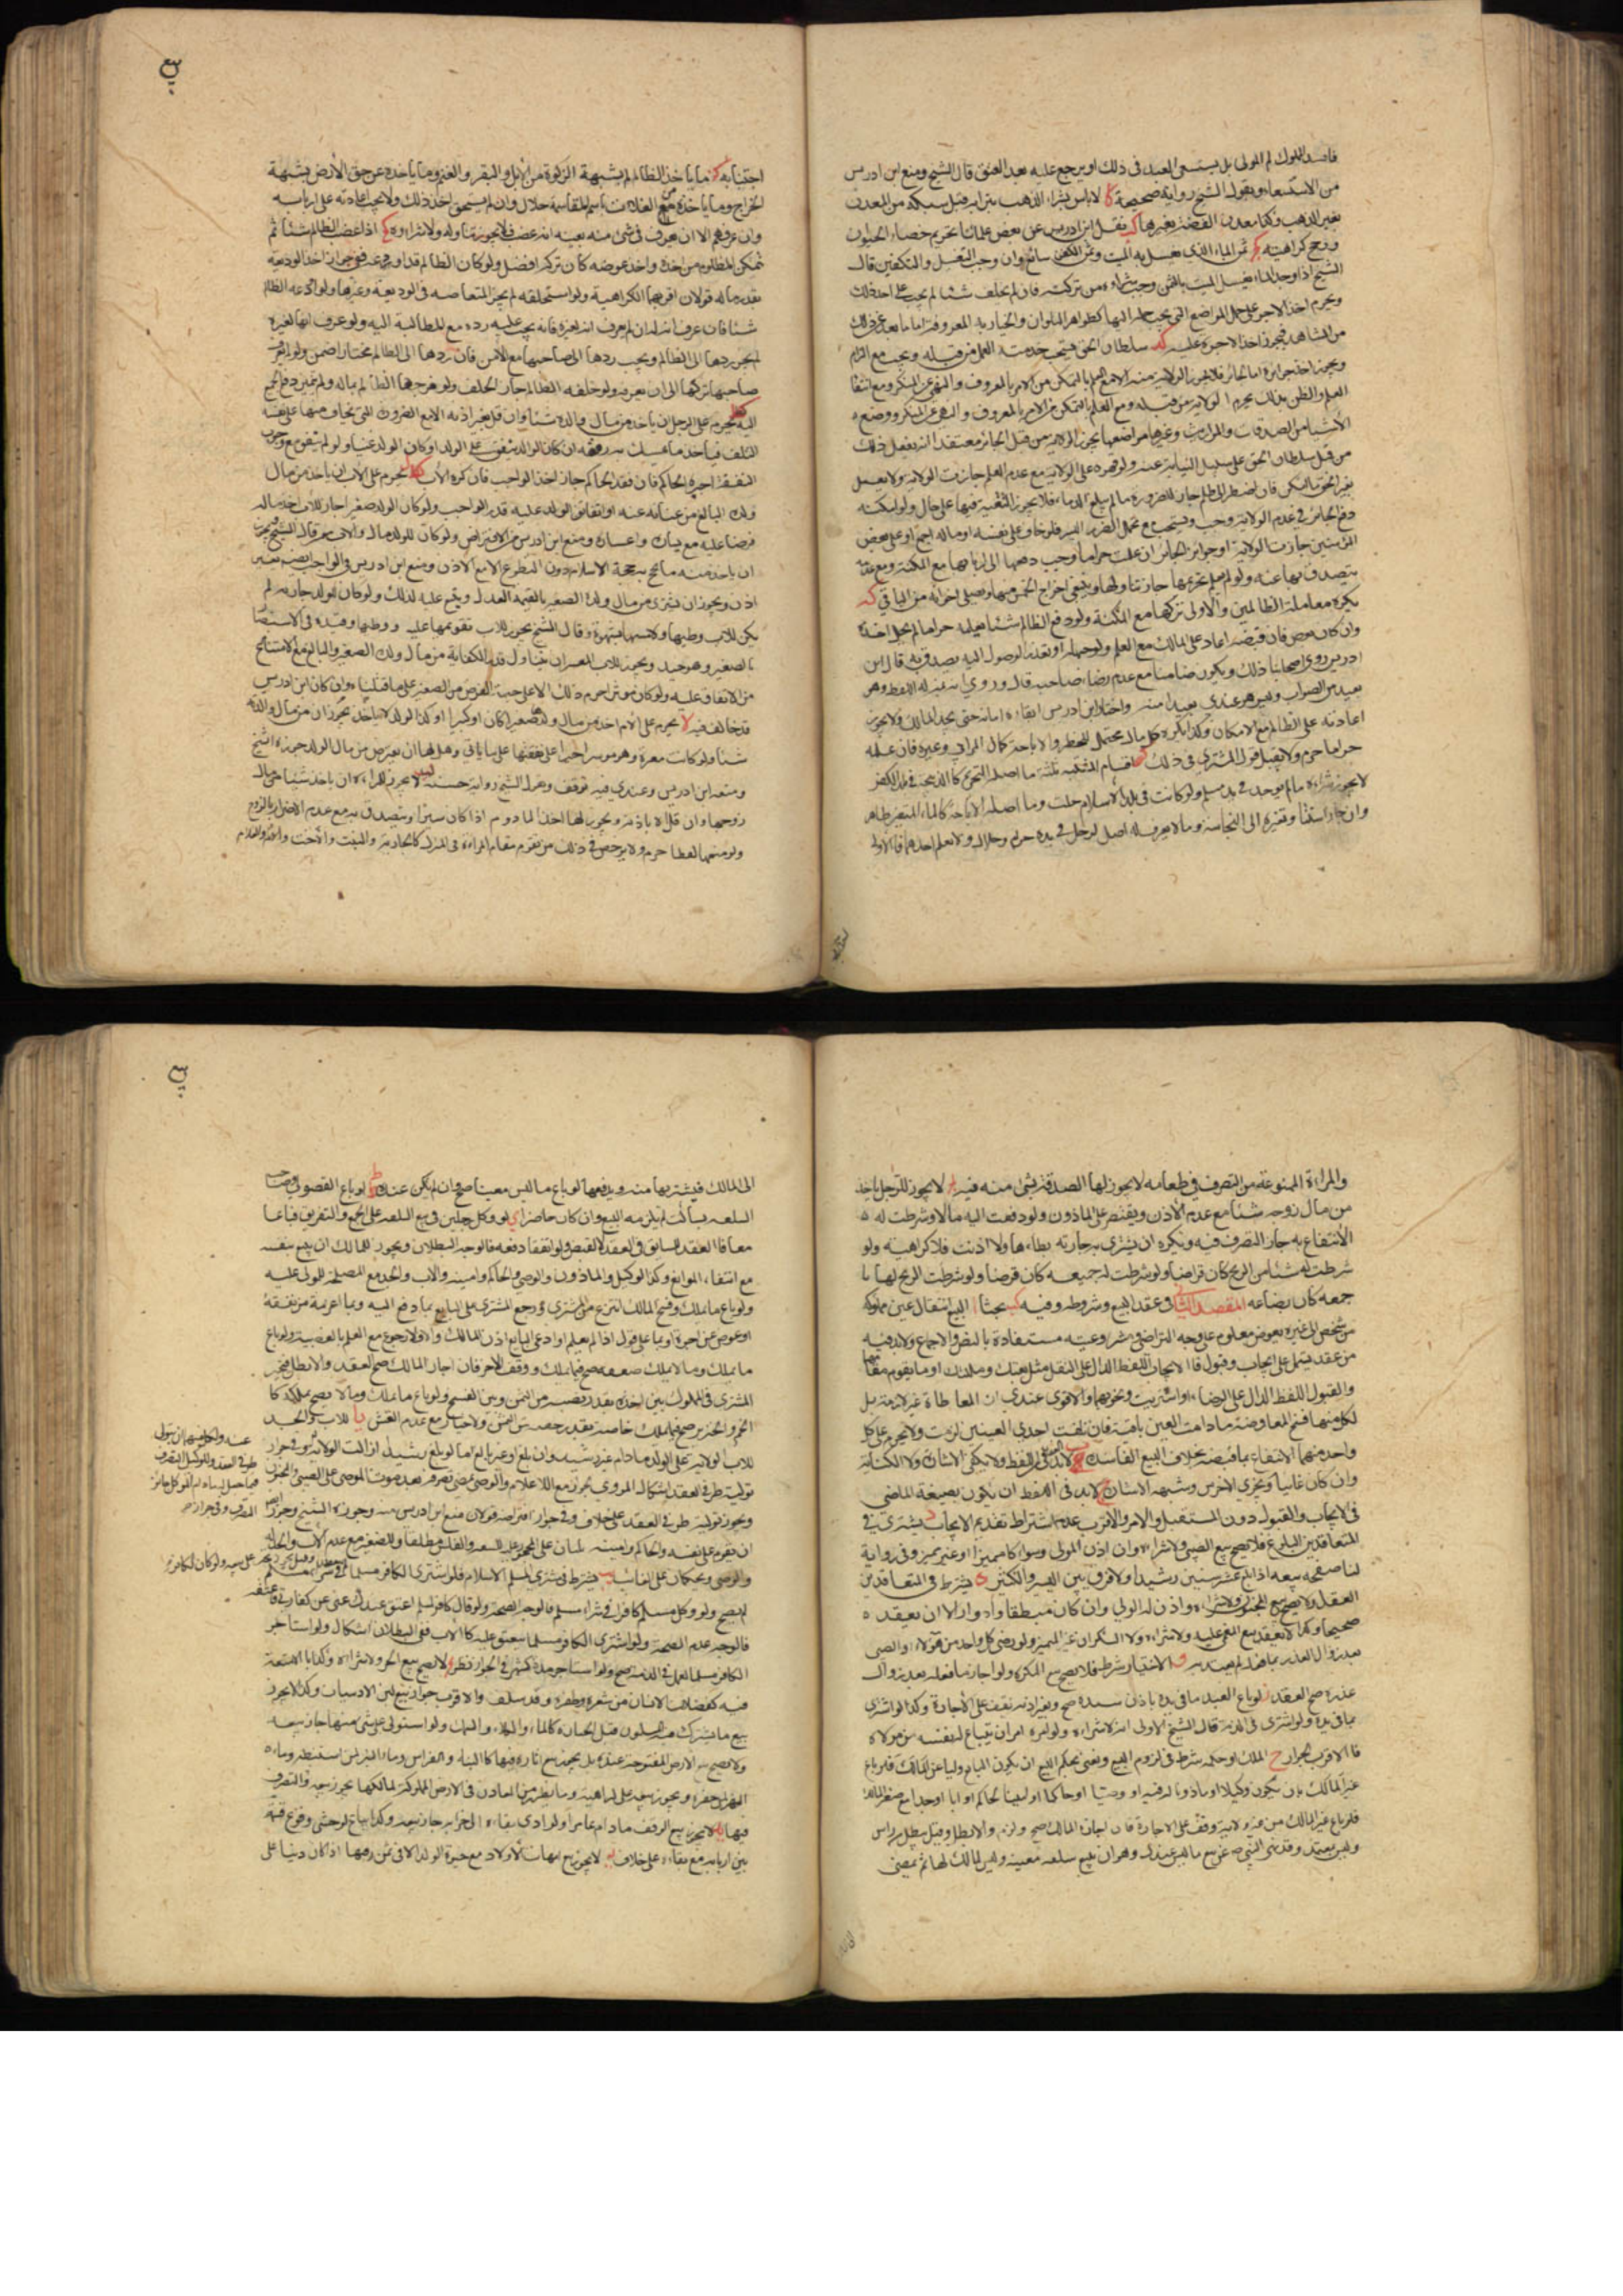 فاسد المملوك لم المولى بل يستسعى العبد فى ذلك او يرجع عليه بعد العتق قال الشيخ ومنع ابن ادريس
من الاستسعاء وبقول الشيخ رواية صحيحة كا لا باس بشراء الذهب بتراب قبل سبكه من المعدن
بغير الذهب وكذا معدن الفضة بغيرها كب نقل ابن ادريس عن بعض علمائنا تحريم خصاء الحيوان
ورجح كراهيته كج ثمن الماء الذى يغسل به الميت وثمن الكفن سائغ وان وجب التغسيل والتكفين قال
الشيخ اذا وجد الماء لغسل الميت بالثمن وجب شراءه من تركته فان لم يخلف شيئا لم يجب على احد ذلك
ويحرم اخذ الاجر على حمل المراضع التى يجب حمله اليها كظواهر البلدان والجبانة المعروفة اما ما بعد عن ذلك
من المشاهد فيجوز اخذ الاجرة عليه كد سلطان الحق يستحب خدمته والعمل من قبله ويجب مع الزام
ويجوز اخذ جوائزه اما الجائر فلا يجوز الولاية منه الا مع العلم بالتمكن من الامر بالمعروف والنهى عن المنكر ومع انتفا
العلم والظن بذلك يحرم الولاية من قبله ومع العلم بالتمكن من الامر بالمعروف والنهى عن المنكر ووضع
الاشياء من الصدقات والمواريث وغيرها مواضعها يجوز الولاية من قبل الجائر معتقدا انه يفعل ذلك
من قبل سلطان الحق على سبيل النيابة عنه ولو قهره على الولاية مع عدم العلم جازت الولاية ولا يعمل
بغير الحق ما امكن فان اضطر الى ظلم جاز للضرورة ما لم يبلغ الدماء فلا يجوز التقية فيها على حال ولو امكنه
دفع الجائر فى عدم الولاية وجب ويستحب مع تحمل الضرر اليسير فلو خاف على نفسه او ماله اجمع او على بعض
المؤمنين جازت الولاية او جوائز الجائر ان علمت حراما وجب دفعها الى اربابها مع المكنة ومع عدمها
يتصدق بها عنه ولو لم يعلم تحريمها جاز تناولها وينبغى اخراج الخمس منها ويصل اخوانه من الباقى كه
يكره معاملة الظالمين والاولى تركها مع المكنة ولو دفع الظالم شيئا يعلمه حراما لم يحل اخذه
وان كان بعوض فان قبضه اعاد على المالك مع العلم ولو جهله او تعذر الوصول اليه تصدق به قال ابن
ادريس روى اصحابنا ذلك ويكون ضامنا مع عدم رضاء صاحبه قال وروى انه بمنزلة اللقطة وهو
بعيد من الصواب وليس هو عندى بعيدا منه واختار ابن ادريس ابقاءه امانة حتى يجد المالك ولا يجوز
اعادته على الظالم مع الامكان وكذا يكره كل مال يحتمل للحظر والاباحة كمال المرابى وغيره فان علمه
حراما حرم ولا يقبل قول المشترى فى ذلك كو اقسام المشتبه ثلثة ما اصله التحريم كالذبيحة فى بلد الكفر
لا يجوز شراءه ما لم يوجد فى يد مسلم ولو كانت فى بلد الاسلام حلت وما اصله الاباحة كالماء المتغير طاهر
وان جاز استناد تغيره الى النجاسة وما لا يعرف له اصل كرجل فى يده حرام وحلال ولا يعلم احدهما فالاولى
اجتنابه كز ما ياخذ الظالم بشبهة الزكوة من الابل والبقر والغنم وما ياخذه عن حق الارض بشبهة
الخراج وما ياخذه من الغلات باسم المقاسمة حلال وان لم يستحق اخذ ذلك ولا يجب اعادته على اربابه
وان عرفهم الا ان يعرف فى شىء منه بعينه انه غصب فلا يجوز تناوله ولا شراءه كح اذا غصب الظالم شيئا ثم
تمكن المظلوم من اخذه واخذ عوضه كان تركه افضل ولو كان الظالم قد اودعه ففى جواز اخذ الوديعة
بقدر ماله قولان اقربهما الكراهية ولو استحلفه لم يجز المقاصة فى الوديعة وغيرها ولو اودعه الظالم
شيئا فان عرف انه له ان لم يعرف انه لغيره فانه يجب عليه رده مع المطالبة اليه ولو عرف انها لغيره
لم يجز ردها الى الظالم ويجب ردها الى صاحبها مع الامن فان ردها الى الظالم مختارا ضمن ولو لم يعرف
صاحبها تركها الى ان يعرفه ولو حلفه الظالم جاز الحلف ولو مزجها الظالم بماله ولم يتميز دفع الجميع
اليه كط يحرم على الرجل ان ياخذ من مال والده شيئا وان قل بغير اذنه الا مع الضرورة التى يخاف منها على نفسه
التلف فياخذ ما يمسك به رمقه ان كان الوالد ينفق على الولد او كان الولد غنيا ولو لم ينفق مع وجوب
النفقة اجبره الحاكم فان فقد الحاكم جاز اخذ الواجب فان كره الاب ل يحرم على الاب ان ياخذ من مال
ولده البالغ مع غنائه عنه او انفاق الولد عليه قدر الواجب ولو كان الولد صغيرا جاز للاب اخذ ماله
قرضا عليه مع يساره واعساره ومنع ابن ادريس من الاقتراض ولو كان للولد مال والاب معسر قال الشيخ يجوز
ان ياخذ منه ما يحج به حجة الاسلام دون التطوع الا مع الاذن ومنع ابن ادريس فى الواجب ايضا بغير
اذن ويجوز ان يشترى من مال ولده الصغير بالقيمة العدل ويقوم عليه كذلك ولو كان للولد جارية لم
يكن للاب وطيها ولا مسها بشهوة وقال الشيخ يجوز للاب تقويمها عليه ووطيها وقيده فى الاستبصار
بالصغير وهو جيد ويجوز للاب المعسر ان يتناول قدر الكفاية من مال ولده الصغير والبالغ مع الامتناع
من الانفاق عليه ولو كان موسرا حرم ذلك الا على جهة القرض من الصغير على ما قلناه وان كان ابن ادريس
قد خالف فيه لا يحرم على الام اخذ من مال ولدها صغيرا كان او كبيرا وكذا الولد لا ياخذ يجوز ان من مال والدته
شيئا ولو كانت معسرة وهو موسر اجبر على نفقتها على ما ياتى وهل لها ان تقترض من مال الولد جوزه الشيخ
ومنعه ابن ادريس وعندى فيه توقف ويدل الشيخ رواية حسنة لب لا يجوز للمراة ان ياخذ شيئا من مال
زوجها وان قل الا باذنه ويجوز لها اخذ المادوم اذا كان يسيرا وتتصدق به مع عدم الاضرار بالزوج
ولو منعها لفظا حرم ولا يرخص فى ذلك من يقوم مقام المراة فى المنزل كالجارية والبنت والاخت والام والخادم
والمراة الممنوعة من التصرف فى طعامه لا يجوز لها الصدقة بشىء منه فيه لج لا يجوز للرجل ان ياخذ
من مال زوجه شيئا مع عدم الاذن ويقتصر على الماذون ولو دفعت اليه مالا وشرطت له
الانتفاع به جاز التصرف فيه ويكره ان يشترى به جارية يطاءها ولا اذنت فلا كراهية ولو
شرطت له شيئا من الربح كان قراضا ولو شرطت له جميعه كان قرضا ولو شرطت الربح لها با
جمعه كان بضاعة المقصد الثانى فى عقد البيع وشروطه وفيه كب بحثا ا البيع انتقال عين مملوكة
من شخص الى غيره بعوض معلوم على وجه التراضى ومشروعيته مستفادة بالنص والاجماع ولابد فيه
من عقد يشتمل على ايجاب وقبول فالايجاب اللفظ الدال على النقل مثل بعتك وملكتك او ما يقوم مقامهما
والقبول اللفظ الدال على الرضاء او اشتريت ونحوهما والاقوى عندى ان المعاطاة غير لازمة بل
لكل منهما فسخ المعاوضة ما دامت العين باقية فان تلفت احدى العينين لزمت ولا يحرم على كل
واحد منهما الانتفاع بما قبضه بخلاف البيع الفاسد ب لابد فى العقد من اللفظ ولا يكفى الاشارة ولا الكتابة
وان كان غائبا ويجزى الاخرس وشبهه الاشارة ج لابد فى اللفظ ان يكون بصيغة الماضى
فى الايجاب والقبول دون المستقبل والامر والاقرب عدم اشتراط تقديم الايجاب د يشترط فى
المتعاقدين البلوغ فلا يصح بيع الصبى ولا شراءه وان اذن المولى وسواء كان مميزا او غير مميز وفى رواية
لنا صحة بيعه اذا بلغ عشر سنين رشيدا ولا فرق بين اليسير والكثير ه يشترط فى المتعاقدين
العقل ولا يصح بيع المجنون ولا شراءه واذن له الولى وان كان مطبقا وادوارا الا ان يعقد
صحيحا وكذا لا ينعقد بيع المغمى عليه ولا شراءه ولا السكران غير المميز ولو رضى كل واحد من هؤلاء او الصبى
بعد زوال العذر بما فعله لم يعتد به و الاختيار شرط فلا يصح بيع المكره ولو اجاز ما فعله بعد زوال
عذره صح العقد ز لو باع العبد ما فى يده باذن سيده صح وبغير اذنه يقف على الاجازة وكذا لو اشترى
بما فى يده ولو اشترى فى الذمة قال الشيخ الاولى انه لا شراءه ولو امره امر ان يبتاع له نفسه من مولاه
فالاقرب الجواز ح الملك او حكمه شرط فى لزوم البيع ونعنى بحكم البيع ان يكون البايع وليا عن المالك فلو باع
غير المالك بان يكون وكيلا او ماذونا له فيه او وصيا او حاكما او امينا لحاكم او ابا او جدا مع صغر المالك
فلو باع غير المالك من غير ولاية وقف على الاجازة فان اجازه المالك صح ولزم والا بطل وقيل يبطل من راس
وليس بمعتمد وقد نهى النبى ص عن بيع ما ليس عندك وهو ان يبيع سلعة معينة وليس المالك لها ثم يمضى
الى المالك فيشتريها منه ويدفعها لو باع ما ليس معينا صح وان لم يكن عنده ط لو باع الفضولى وصاحب
السلعة ساكت لم يلزمه البيع وان كان حاضرا ى لو وكل رجلين فى بيع السلعة على الجمع والتفريق فباعا
معا فالعقد للسابق فى العقد لا القبض ولو اتفقا دفعة فالوجه البطلان ويجوز للمالك ان يبيع بنفسه
مع انتفاء الموانع وكذا الوكيل والماذون والوصى والحاكم وامينه والاب والجد مع المصلحة للمولى عليه
ولو باع ما يملك وفسخ المالك انتزع من المشترى ورجع المشترى على البايع بما دفع اليه وبما اغرمه من نفقة
او عوض عن اجرة او نما على قول اذا لم يعلم او ادعى البايع اذن المالك ولا رجوع مع العلم بالغصبية ولو باع
ما يملك وما لا يملك صفقة صح فيما يملك ووقف الاخر فان اجاز المالك صح العقد والا بطل فيتخير
المشترى فى المملوك بين اخذه بقدر نصيبه من الثمن وبين الفسخ ولو باع ما يملك وما لا يصح تملكه كا
الخمر والخنزير صح فيما يملك خاصة بقدر حصته من الثمن ولا خيار مع عدم الغش يا للاب والجد
للاب الولاية على الولد ما دام غير رشيد وان بلغ او غير بالغ اما لو بلغ رشيدا زالت الولاية وفى جواز
توليته طرفى العقد اشكال المروى يجوز مع الاعلام والوصى يمضى تصرفه بعد موت الموصى على الصبى والمجنون
ويجوز توليته طرفى العقد على خلاف وفى جواز اقتراضه قولان منع ابن ادريس منه وجوزه الشيخ وجواز
ان يقوم على نفسه والحاكم وامينه يليان على المحجور عليه للسفه والفلس مطلقا وللصغر مع عدم الاب والجد له
والوصى ويحكمان على الغائب يب يشترط فى مشترى المسلم الاسلام فلو اشترى الكافر مسلما
لم يصح ولو وكل مسلم كافرا فى شراء مسلم فالوجه الصحة ولو قال كافر لمسلم اعتق عبدك عنى عن كفارتى فاعتقه
فالوجه عدم الصحة ولو اشترى الكافر مسلما ينعتق عليه كالاب ففى البطلان اشكال ولو استاجر
الكافر مسلما لعمل فى الذمة صح ولو استاجر مدة كشهر فى الجواز نظر يج لا يصح بيع الحر ولا شراءه وكذا ما لا منفعة
فيه كفضلات الانسان من شعره وظفره وقد سلف والاقرب جواز بيع لبن الادميات وكذا لا يجوز
بيع ما يشترك فيه المسلمون قبل الحيازة كالماء والكلاء والنبات ولو استولى على شىء منها جاز بيعه
ولا يصح بيع الارض المفتوحة عنوة بل يجوز بيع اثاره فيها كالبناء والغراس وماء البئر لمن استنبطه وماء
النهر لمن حفره ويجوز بيعه على كراهية وما يظهر من المعادن فى الارض المملوكة لمالكها يجوز بيعه والتصرف
فيها يد لا يجوز بيع الوقف ما دام عامرا ولو ادى بقاءه الى خرابه جاز بيعه وكذا يباع لو خشى وقوع فتنة
بين اربابه مع بقاءه على خلاف يه لا يجوز بيع امهات الاولاد مع حيوة الولد الا فى ثمن رقبها اذا كان دينا على